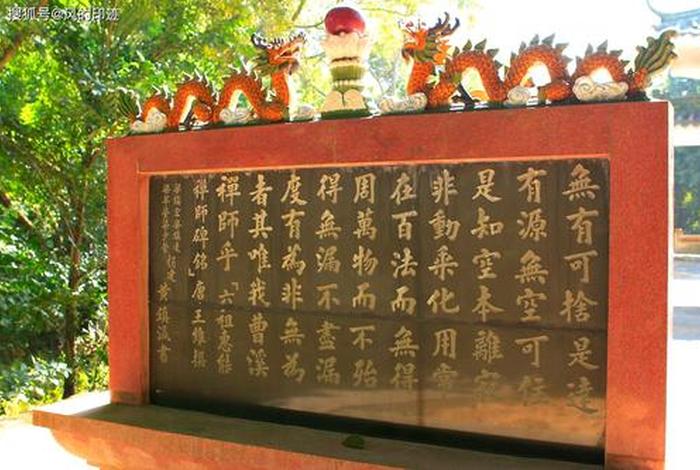 搜狐号@风的印迹
無有可捨是達
有源無空可住
是知空本離寂
非動乘化用常
在百法而無得
周萬物而不殆
得無漏不盡漏
度有為非無為
者其唯我曹溪
禪師乎「六祖惠能
禪師碑銘」唐王維撰